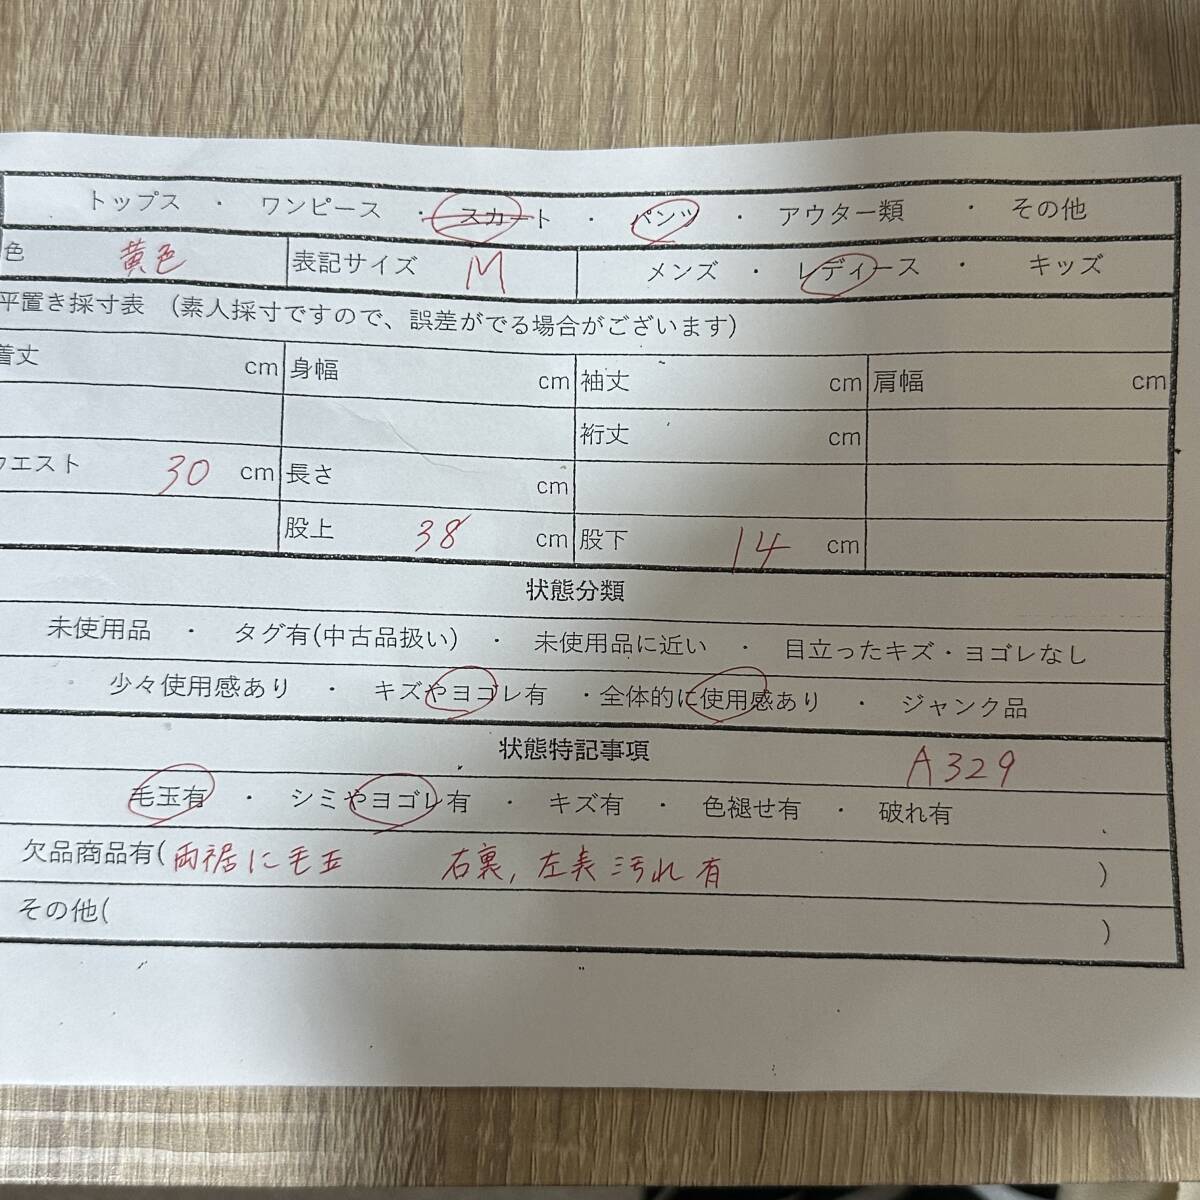 トップス ・ ワンピース ・ スカート ・ パンツ ・ アウター類 ・ その他
色 黄色 表記サイズ M メンズ ・ レディース ・ キッズ
平置き採寸表 (素人採寸ですので、誤差がでる場合がございます)
着丈 cm 身幅 cm 袖丈 cm 肩幅 cm
裄丈 cm
ウエスト 30 cm 長さ cm
股上 38 cm 股下 14 cm
状態分類
未使用品 ・ タグ有(中古品扱い) ・ 未使用品に近い ・ 目立ったキズ・ヨゴレなし
少々使用感あり ・ キズやヨゴレ有 ・全体的に使用感あり ・ ジャンク品
状態特記事項 A329
毛玉有 ・ シミやヨゴレ有 ・ キズ有 ・ 色褪せ有 ・ 破れ有
欠品商品有(両裾に毛玉 右裏,左表汚れ有 )
その他( )